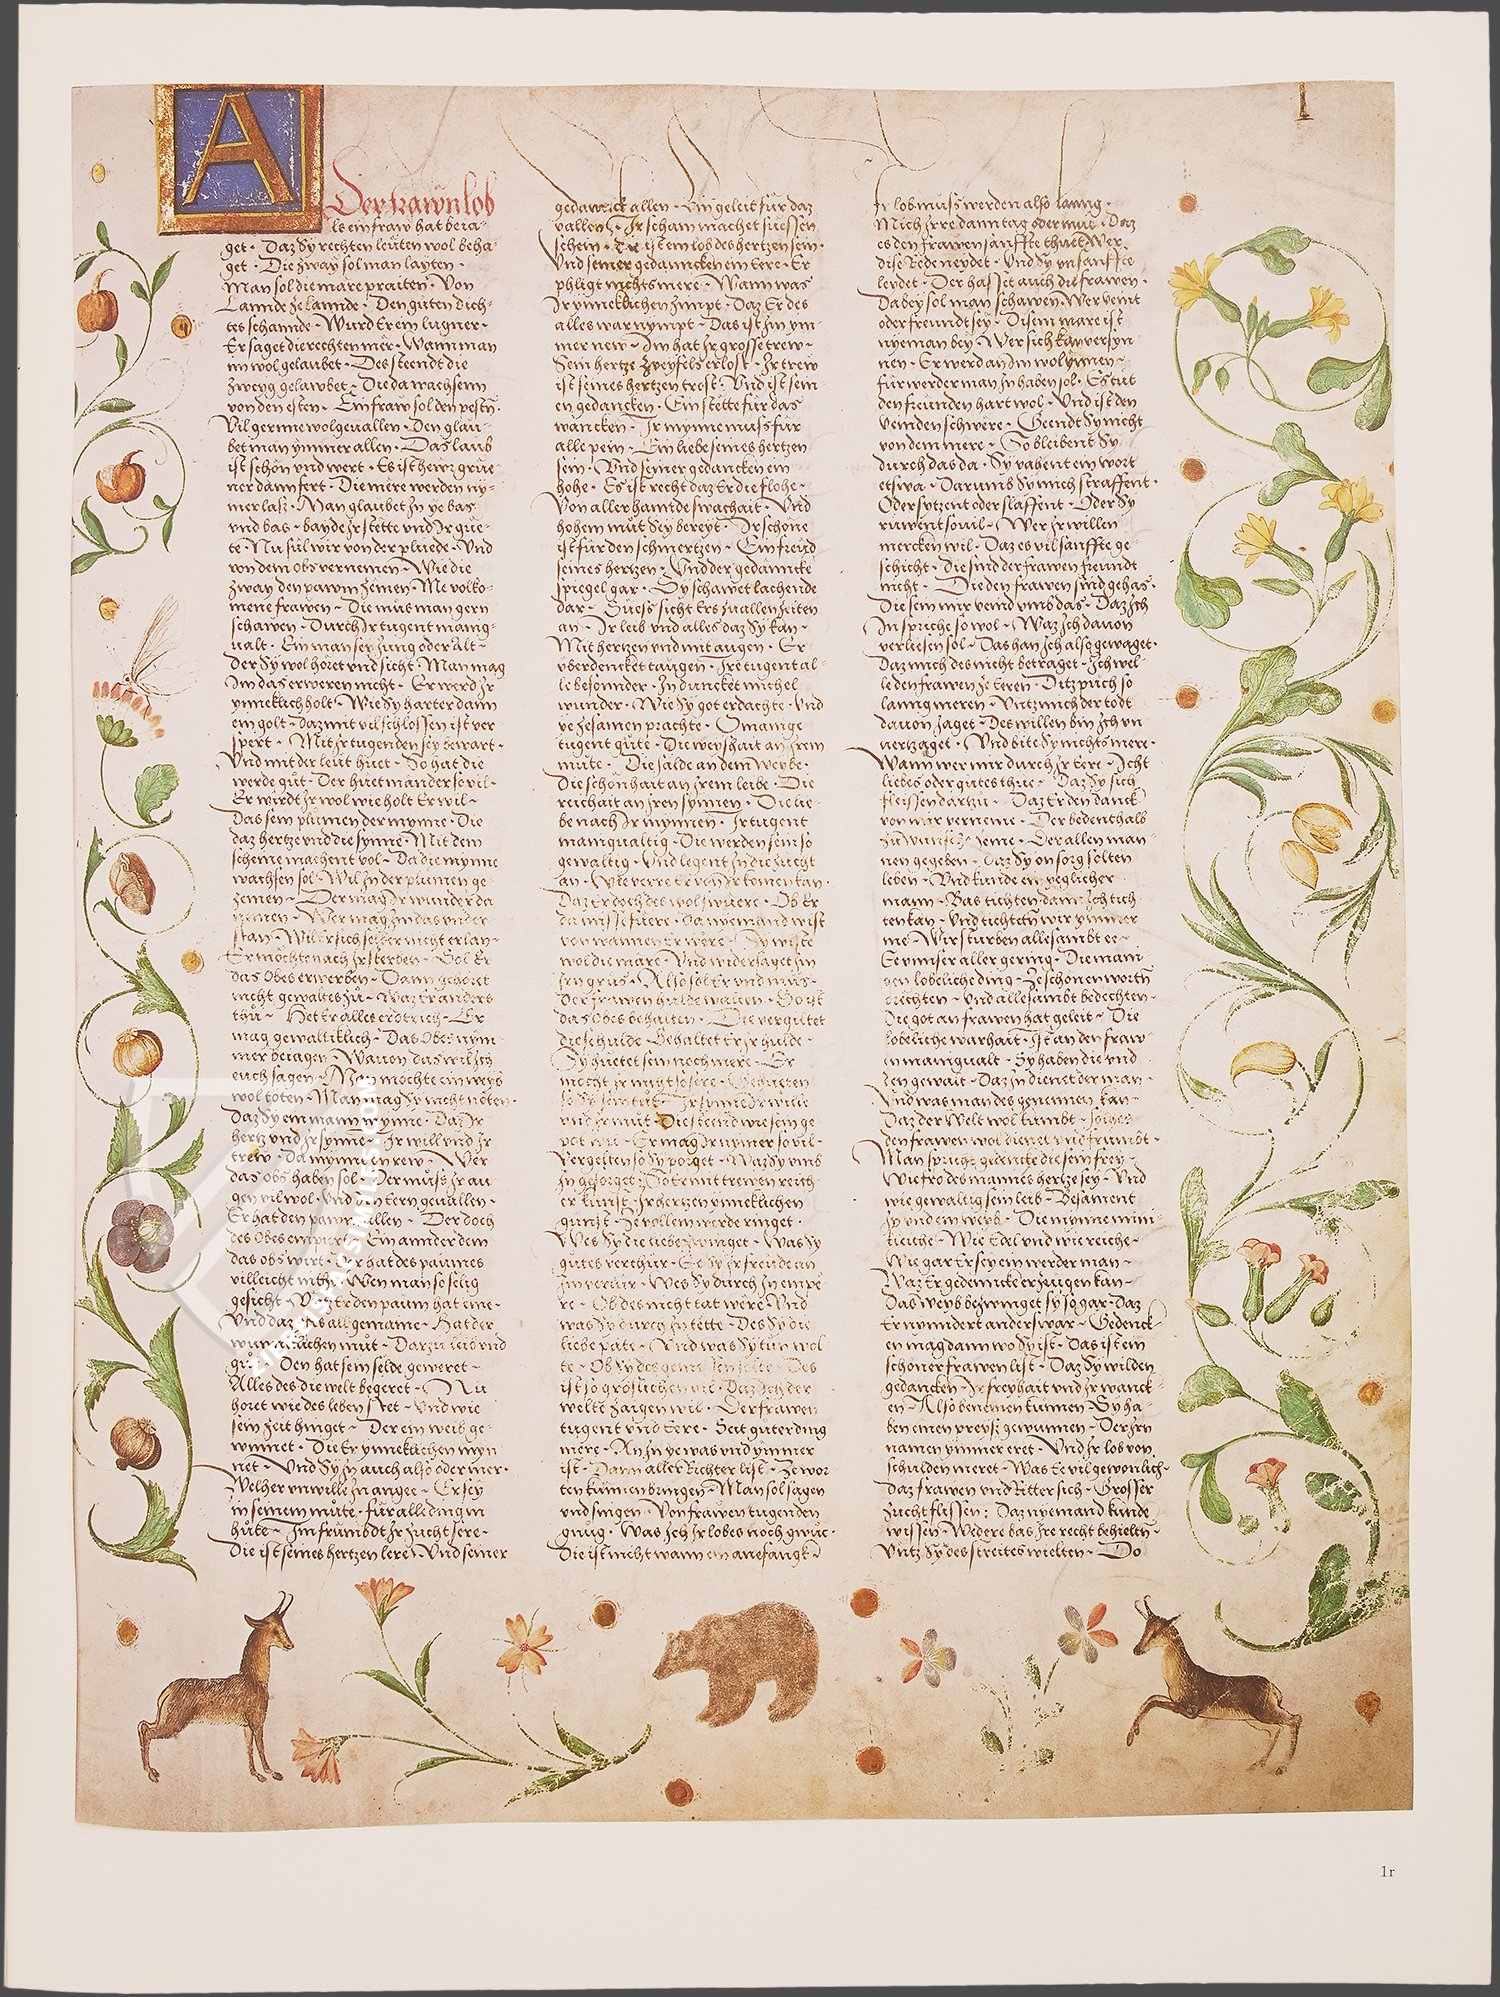 A
Der frawn lob
ls ein fraw hat beia-
get · Daz Sy rechten leuten wol beha-
get · Die zway sol man layten ·
Man sol die mare praiten · Von
Lannde ze lannde · Den guten dich-
ter schannde · Wurd Er ein lugner ·
Er saget die rechten mer · Wann man
im wol glaubet · Des steendt die
zweyg gelawbet · Die da wachsenn
von den esten · Ein fraw sol den pesten
Vil gerrne wol geuallen · Den glau-
bet man ymmer allen · Das laub
ist schön vnd wert · Es ist hewr grue
ner dann fert · Die mere werden ny-
mer lasz · Man glaubet In ye bas
vnd bas · bayde Ir stette vnd Ir gue-
te · Nu sül wir von der pluede · Vnd
von dem obs vernemen · Wie die
zway den pawm zemen ·
mene frawen · Die mus man gern
schawen · Durch Ir tugent manig-
ualt · Ein man sey Jung oder Alt ·
Der Sy wol höret vnd sicht · Man mag
Im das erweren nicht · Er werd Ir
ynneklich holt · Wie Sy harter dann
ein golt · daz mit vil schlossen ist ver
spert · Mit Ir tugenden sey bewart ·
Vnd mit der leut huet · So hat die
werde gůt · Der huet mander so vil ·
Er wirdt Ir wol wie holt Er wil ·
Das sein plumen der mynne · Die
daz hertze vnd die synne · Mit dem
scheine machent vol · Da die mynne
wachsen sol · Wil In der plumen ge-
zemen · Der mag Ir wunder da
nemen · Wer mag In das vnder
stan · Wil Er sich selber nicht erlan ·
Er möchte nach Ir sterben · Sol Er
das Obes erwerben · Dann gehöret
nicht gewaltes zů · Waz Er anders
thů · Het Er alles erdtrich · Er
mag gewaltiklich · Das Obes nym-
mer beiagen · Warvon das wil ich
euch sagen · Man möchte ein weyb
wol töten · Man mag Sy nicht nöten ·
Daz Sy ein mann mynne · Daz Ir
hertz vnd Ir synne · Ir will vnd Ir
trew · Da mynn
das obs haben sol · Der muss Ir au
gen vil wol · Vnd den
Er hat den paum allen · Der doch
des Obes empirt · Ein annder dem
das obs wirt · Er hat des paumes
villeicht nicht · Wen man so selig
gesicht · Daz Er den paum hat eine ·
Vnd daz obs all gemaine · Hat der
mut · Darzu leib vnd
gut · Den hat sein selde geweret ·
Alles des die welt begeret · Nu
höret wie des leben stet · Vnd wie
sein zeit hinget · Der ein weib ge-
wynnet · Die Er ynneklichen myn
net · Vnd Sy In auch also oder mer ·
Welher vnwille In angee · Er sey
in seinem můte · für alle ding in
hůte · Im frumbdt Ir zucht sere ·
Die ist seines hertzen lere · Vnd seiner
gedanck allen · Ein geleit für daz
vallen · Ir scham machet suessen
schein · Die ist ein lob des hertzen sein ·
Vnd seiner gedanncken ein Eere · Er
phligt nichts mere · Wann was
Ir ynneklichen zympt · Daz Er des
alles war nympt · Das ist Im ym-
mer new · Im hat Ir grosse trew ·
Sein hertze zweyfels erlost · Ir trew
ist seines hertzen trost · Vnd ist sein
en gedancken · Ein stette für das
wancken · Ir mynne muss für
alle pein · Ein liebe seines hertzen
sein · Vnd seiner gedancken ein
hohe · Es ist recht daz Er die flohe ·
Von aller hannde swachait · Vnd
hohem můt Sey bereyt · Ir schöne
ist für den schmertzen · Ein freud
seines hertzen · Vnd der gedannck
spiegel gar · Sy schawet lachende
dar · Suess sicht Ers zu allen zeiten
an · Ir leib vnd alles daz Sy kan ·
Mit hertzen vnd mit augen · Er
vberdencket taugen · Ire tugent al-
le besonnder · In duncket michel
wunder · Wie Sy got erdachte · Vnd
ye zesamen prachte · So manige
tugent gůte · Die weyshait an Irem
můte · Die sälde an dem weybe ·
Die schönhait an Irem leibe · Die
reichait an Iren synnen · Die lie-
be nach Ir mynnen · Ir tugent
manigualtig · Die werden sein so
gewaltig · Vnd legent In die zucht
an · Wie verre Er von Ir komen kan ·
Daz Er doch des wol swüere · Ob Er
da missefüere · Da nyemand wist
von wannen Er were · Sy wiste
wol die mare · Vnd widersaget Im
Iren grus · Also sol Er vnd mus ·
Der frawen hulde walten · So ist
das Obes behalten · Die vergultet
die schulde · Behaltet Er Ir hulde ·
Sy huetet sein noch mere · Er
möcht Ir nicht so sere · Gehueten
so Sy sein tut · Ir synne Ir wille
vnd Ir mut · Die seind wie sein ge
pot · Er mag Ir nymer so vil ·
Vergelten so Sy porget · Waz Sy vmb
In gesorget · Sol er mit trewen reich
er kunst · Ir hertzen ynneklichen
gunst · Ze vollem werde ringet ·
Wes Sy die liebe zwinget · Was Sy
gutes verchür · Ee Sy Ir freude an
Im verlür · Wes Sy durch In empe
re · Ob des nicht tät were · Vnd
was Sy durch In tette · Des Sy die
liebe päte · Vnd was Sy tůn wol
te · Ob Sy des geniessen solte · Des
ist so gröslichen vil · Daz Ich der
welte zaigen wil · Der frawen
tugent vnd Eere · Seit guter ding
mere · An In ye was vnd ymmer
ist · Dann aller Tichter list · Ze wor
ten kunnen bringen · Man sol sagen
vnd singen · Von frawen tugenden
gnůg · Was Ich Ir lobes noch gwüc ·
Die ist nicht wann ein anefangk ·
Ir lob muss werden also lanng ·
Mich Irre dann tag oder mue · Daz
es den frawen sanffte thuet · Wer
dise Rede neydet · Vnd Sy vnsanffte
leydet · Der hasset auch die frawen ·
Dabey sol man schawen · Wer veint
oder freundt sey · Disem mare ist
nyeman bey · Wer sich kan versyn
nen · Er werd an Im wol ynnen ·
für wer der man In haben sol · Es tut
den freunden hart wol · Vnd ist den
veinden schwere · Geendt Sy nicht
von dem mere · So bleibent Sy
durch das da · Sy vahent ein wort
etswa · Darumb Sy mich straffent ·
Oder sytzent oder slaffent · Oder Sy
rawnent souil · Wer Ir willen
mercken wil · Daz es vil sanffte ge-
schicht · die sind der frawen freundt
nicht · Die den frawen sind gehas ·
Die sein mir veind vmb das · Daz Ich
In spriche so wol · Waz Ich dauon
verliesen sol · Das han Ich also gewaget ·
Daz mich des nicht betraget · Ich wel-
le den frawen ze Eeren · Ditz puch so
lanng meren · Vntz mich der todt
dauon Jaget · Des willen bin Ich vn
uertzaget · Vnd bite Sy nichts mere ·
Wann wer mir durch Ir Eere · Icht
liebes oder gutes thue · Daz Sy sich
fleissen dartzu · Daz Er den danck
von mir verneme · Der beden thalb
zu wunsch zeme · Der allen man
nen gegeben · Daz Sy on sorg solten
leben · Vnd kunde ein yeglicher
mann · Bas tichten dann Ich tich
ten kan · Vnd tichtetn wir ymmer
me · Wir sturben alle sambt ee ·
Ee vnser aller gering · Die mani
gen lobeliche ding · Ze schönen worten
brechten · Vnd alle sambt bedechten ·
Die got an frawen hat geleit · Die
lobeliche warhait · Ist an den fraw-
en manigualt · Sy haben die vnd
den gewalt · Daz In dienet der man ·
Vnd was man des genennen kan ·
Daz der Welt wol kumbt · Solhes
den frawen wol dienet vnd frumbt ·
Man spricht gedencke die sein frey ·
Wie fro des mannes hertze sey · Vnd
wie gewaltig sein leib · Besament
Sy vnd ein weyb · Die mynne mini-
kleiche · Wie Edel vnd wie reiche ·
Wie gar Er sey ein werder man ·
Waz Er gedennck erzeugen kan ·
Das weyb bezwinget Sy so gar · Daz
Er nynndert anders war · Gedenck-
en mag dann wo Sy ist · Das ist ein
schöner frawen list · Daz Sy wilden
gedancken · Ir freyhait vnd Ir wanck-
en · Also benemen kunnen · Sy ha-
ben einen preysz gewunnen · Der Irn
namen ymmer eret · Vnd Ir lob von
schulden meret · Was Ee vil gewonlich ·
daz frawen vnd Ritter sich · Grosser
zucht flissen · Daz nyemand kunde
wissen · Wedere bas Ire recht behielten ·
Vntz Sy des streites wielten · Do
1r
ZIEREIS FACSIMILES.COM